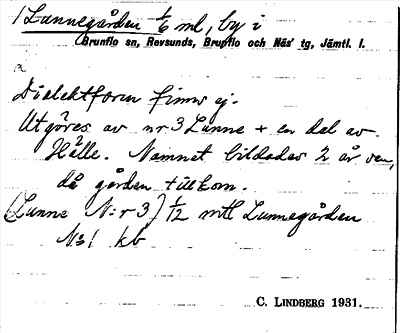 1 Lunnegården 1/6 ml, by i
(Brunflo sn, Revsunds, Brunflo och Näs' tg, Jämtl. l.
a
Dialektform finns ej.
Utgöres av nr 3 Lunne + en del av
Hälle. Namnet bildades 2 år sen,
då gården tillkom.
(Lunne N:r 3) 1/12 mtl Lunnegården
N:1 kb
C. LINDBERG 1931.